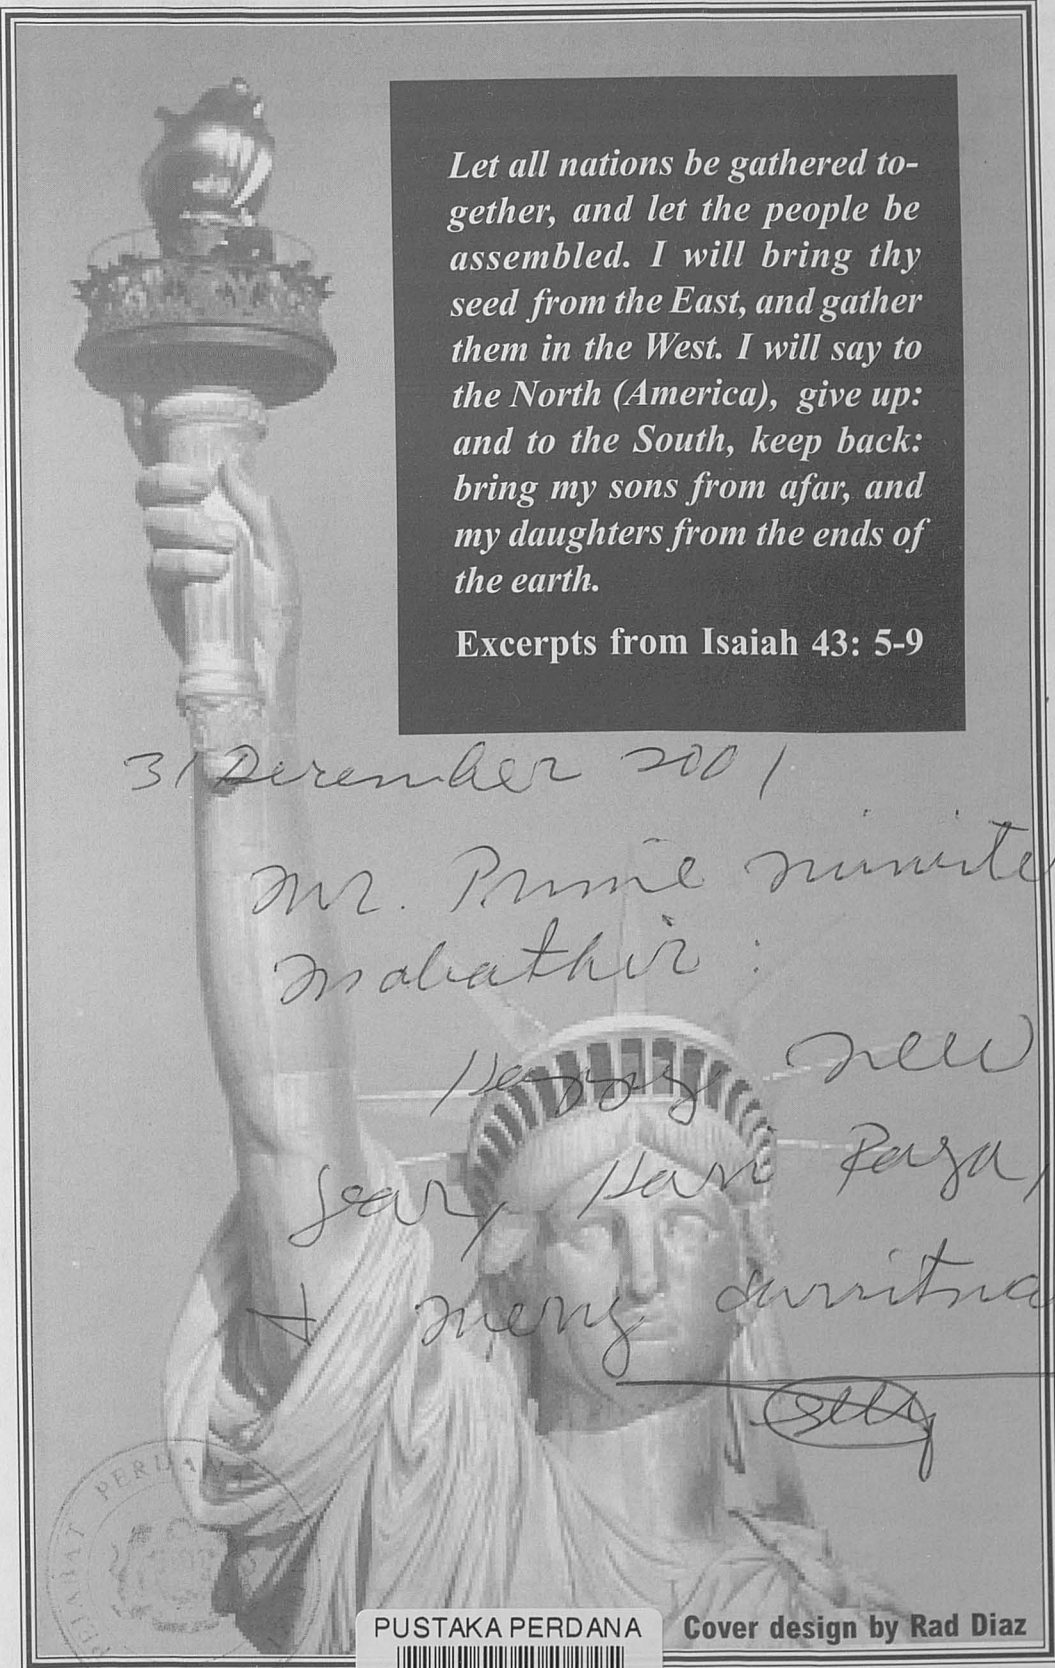 Let all nations be gathered to-
gether, and let the people be
assembled. I will bring thy
seed from the East, and gather
them in the West. I will say to
the North (America), give up:
and to the South, keep back:
bring my sons from afar, and
my daughters from the ends of
the earth.
Excerpts from Isaiah 43: 5-9
31 December 2001
Mr. Prime Ministe
Mahathir :
Happy New
Year, Hari Raya,
+ Merry
PEJABAT PERDANA
PUSTAKA PERDANA
Cover design by Rad Diaz